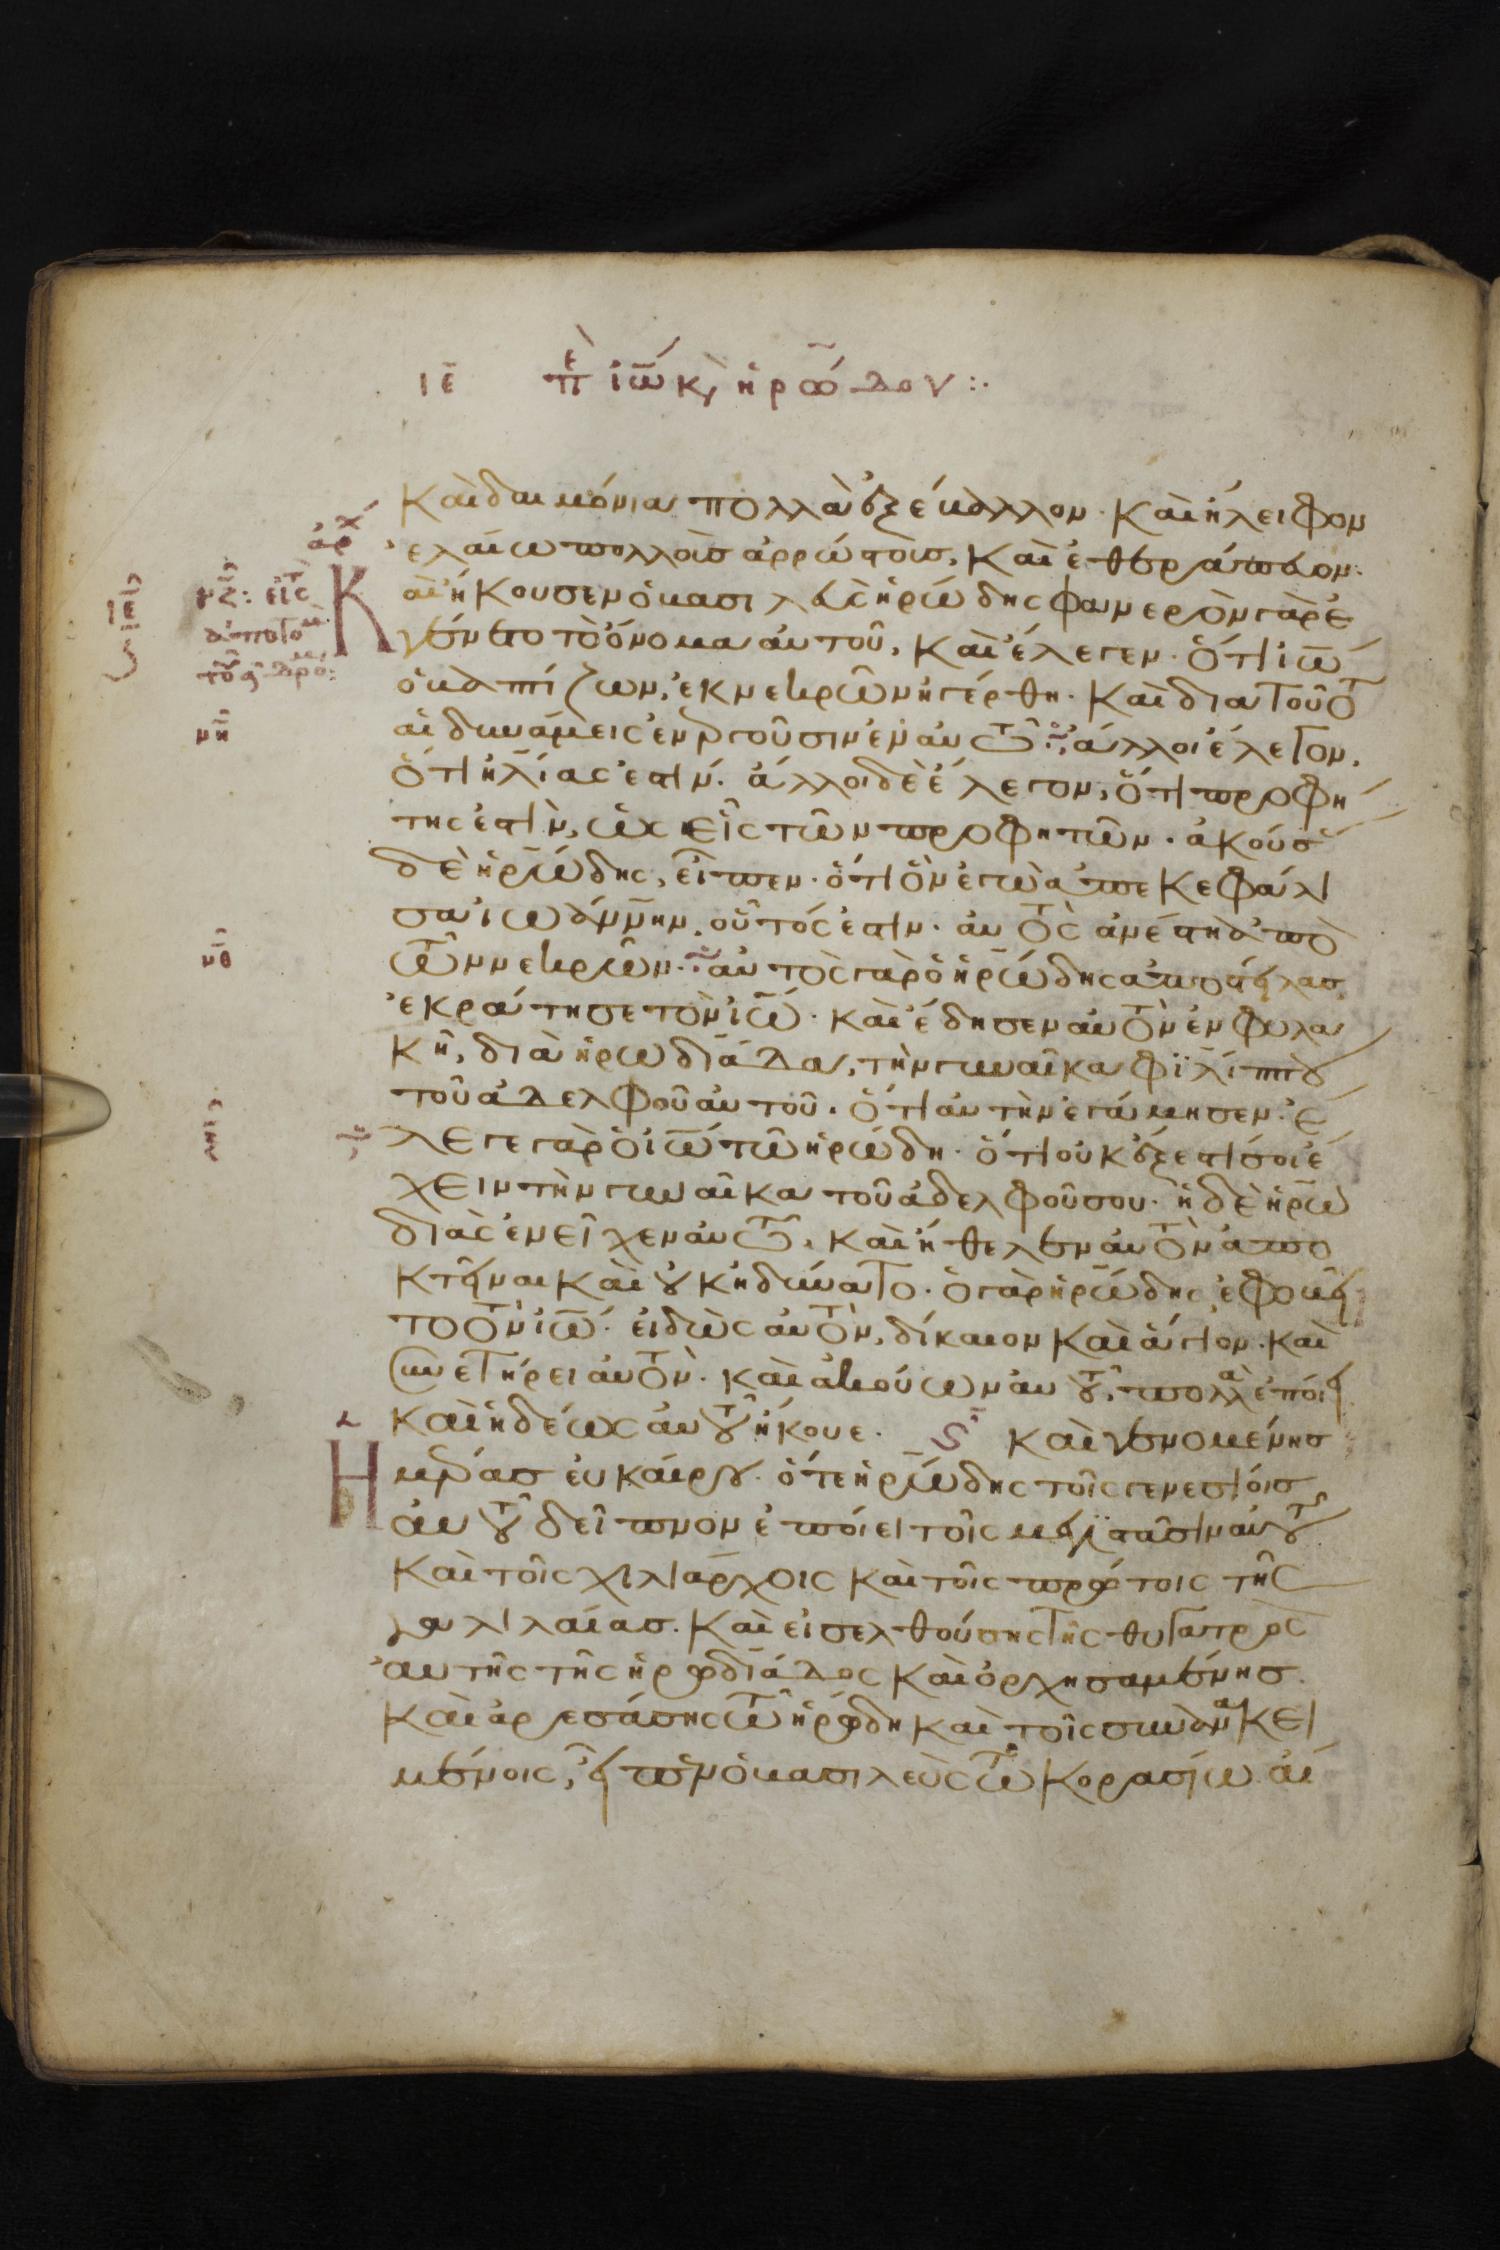 ιε̄ πὲ ἰω̅ κ, ἡρώδου:·
Καὶ δαιμόνια πολλὰ ἐξέβαλλον· Καὶ ἤλειφον
ἐλαίω πολλοῖσ ἀρρώστοισ, Καὶ ἐθεράπευον·
Κ
αὶ ἤκουσεν ὁ βασιλεὺς ἡρώδης φανερὸν γὰρ ἐ
γένετο τὸ ὄνομα αὐτοῦ, Καὶ ἔλεγεν· ὅτι ἰω̅
ὁ βαπτίζων, ἐκ νεκρῶν ἠγέρθη· Καὶ δια τοῦτ
αἱ δυνάμεις ἐνεργοῦσιν ἐν αὐτῶ· ἄλλοι ἔλεγον,
ὅτι ἠλίας ἐστίν· ἄλλοι δὲ ἔλεγον, ὅτι προφή
της ἐστὶν, ὡς εἷς τῶν προφητῶν· ἀκούσ
δὲ ἡρώδης, εἶπεν· ὅτι ὃν ἐγὼ ἀπεκεφάλι
σα ἰωάννην, οὗτός ἐστιν· αὐτὸς ἀνέστη ἀπὸ
τῶν νεκρῶν· αὐτὸς γὰρ ὁ ἡρώδης ἀποστείλασ
ἐκράτησε τὸν ἰω̅· καὶ ἔδησεν αὐτὸν ἐν φυλα
κῆ, διὰ ἡρωδιάδα, τὴν γυναῖκα φιλίππου
τοῦ ἀδελφοῦ αὐτοῦ. ὅτι αὐτὴν ἐγάμησεν· ἔ
λεγε γὰρ ὁ ἰω̅ τῶ ἡρώδη· ὅτι οὐκ ἔξεστί σοι ἔ
χειν τὴν γυναῖκα τοῦ ἀδελφοῦ σου· ἡ δὲ ἡρω
διὰς ἐνεῖχεν αὐτῶ, καὶ ἤθελεν αὐτὸν ἀπο
κτεῖναι Καὶ οὐκ ἠδύνατο· ὁ γὰρ ἡρώδης ἐφοβεῖ
το τὸν ἰω̅· εἰδὼς αὐτὸν, δίκαιον Καὶ ἅγιον· Καὶ
συνετήρει αὐτὸν· καὶ ἀκούων αὐτοῦ, πολλὰ ἐποίει
καὶ ἡδέως αὐτοῦ ἤκουε· ς Καὶ γενομένησ
Ἡ
μέρασ εὐκαίρου· ὅτε ἡρώδης τοῖς γενεσίοισ
αὐτοῦ δεῖπνον ἐποίει τοῖς μεγιστᾶσιν αὐτοῦ
Καὶ τοῖς χιλιάρχοις Καὶ τοῖς πρώτοις τῆς
γαλιλαίασ. Καὶ εἰσελθούσης τῆς θυγατρὸς
αὐτῆς τῆς ἡρωδιάδος Καὶ ὀρχησαμένησ.
Καὶ ἀρεσάσης τῶ ἡρώδη Καὶ τοῖς συνανακει
μένοις, εἶπεν ὁ βασιλεὺς τῶ Κορασίω αἴ
ἀρχ
μζ: εἰς
ἀποτομ
τοῦ
μη
μθ